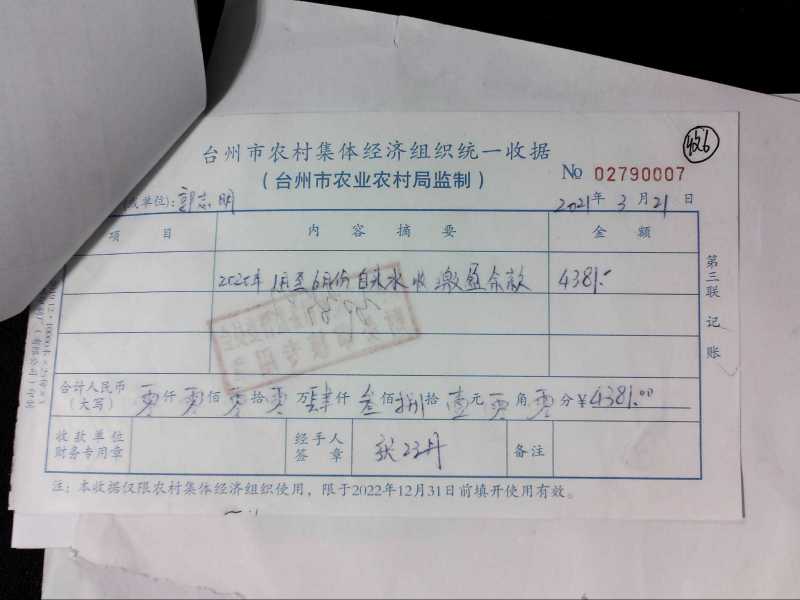 收26
台州市农村集体经济组织统一收据
(台州市农业农村局监制)
No 02790007
或单位):郭志明
2021年3月21日
项目 内容摘要 金额
2020年1月至6月份自来水收缴盈余款 4381.-
合计人民币(大写) 零仟零佰零拾零万肆仟叁佰捌拾壹元零角零分¥4381.00
收款单位财务专用章 经手人签章 备注
第三联 记账
注:本收据仅限农村集体经济组织使用,限于2022年12月31日前填开使用有效。